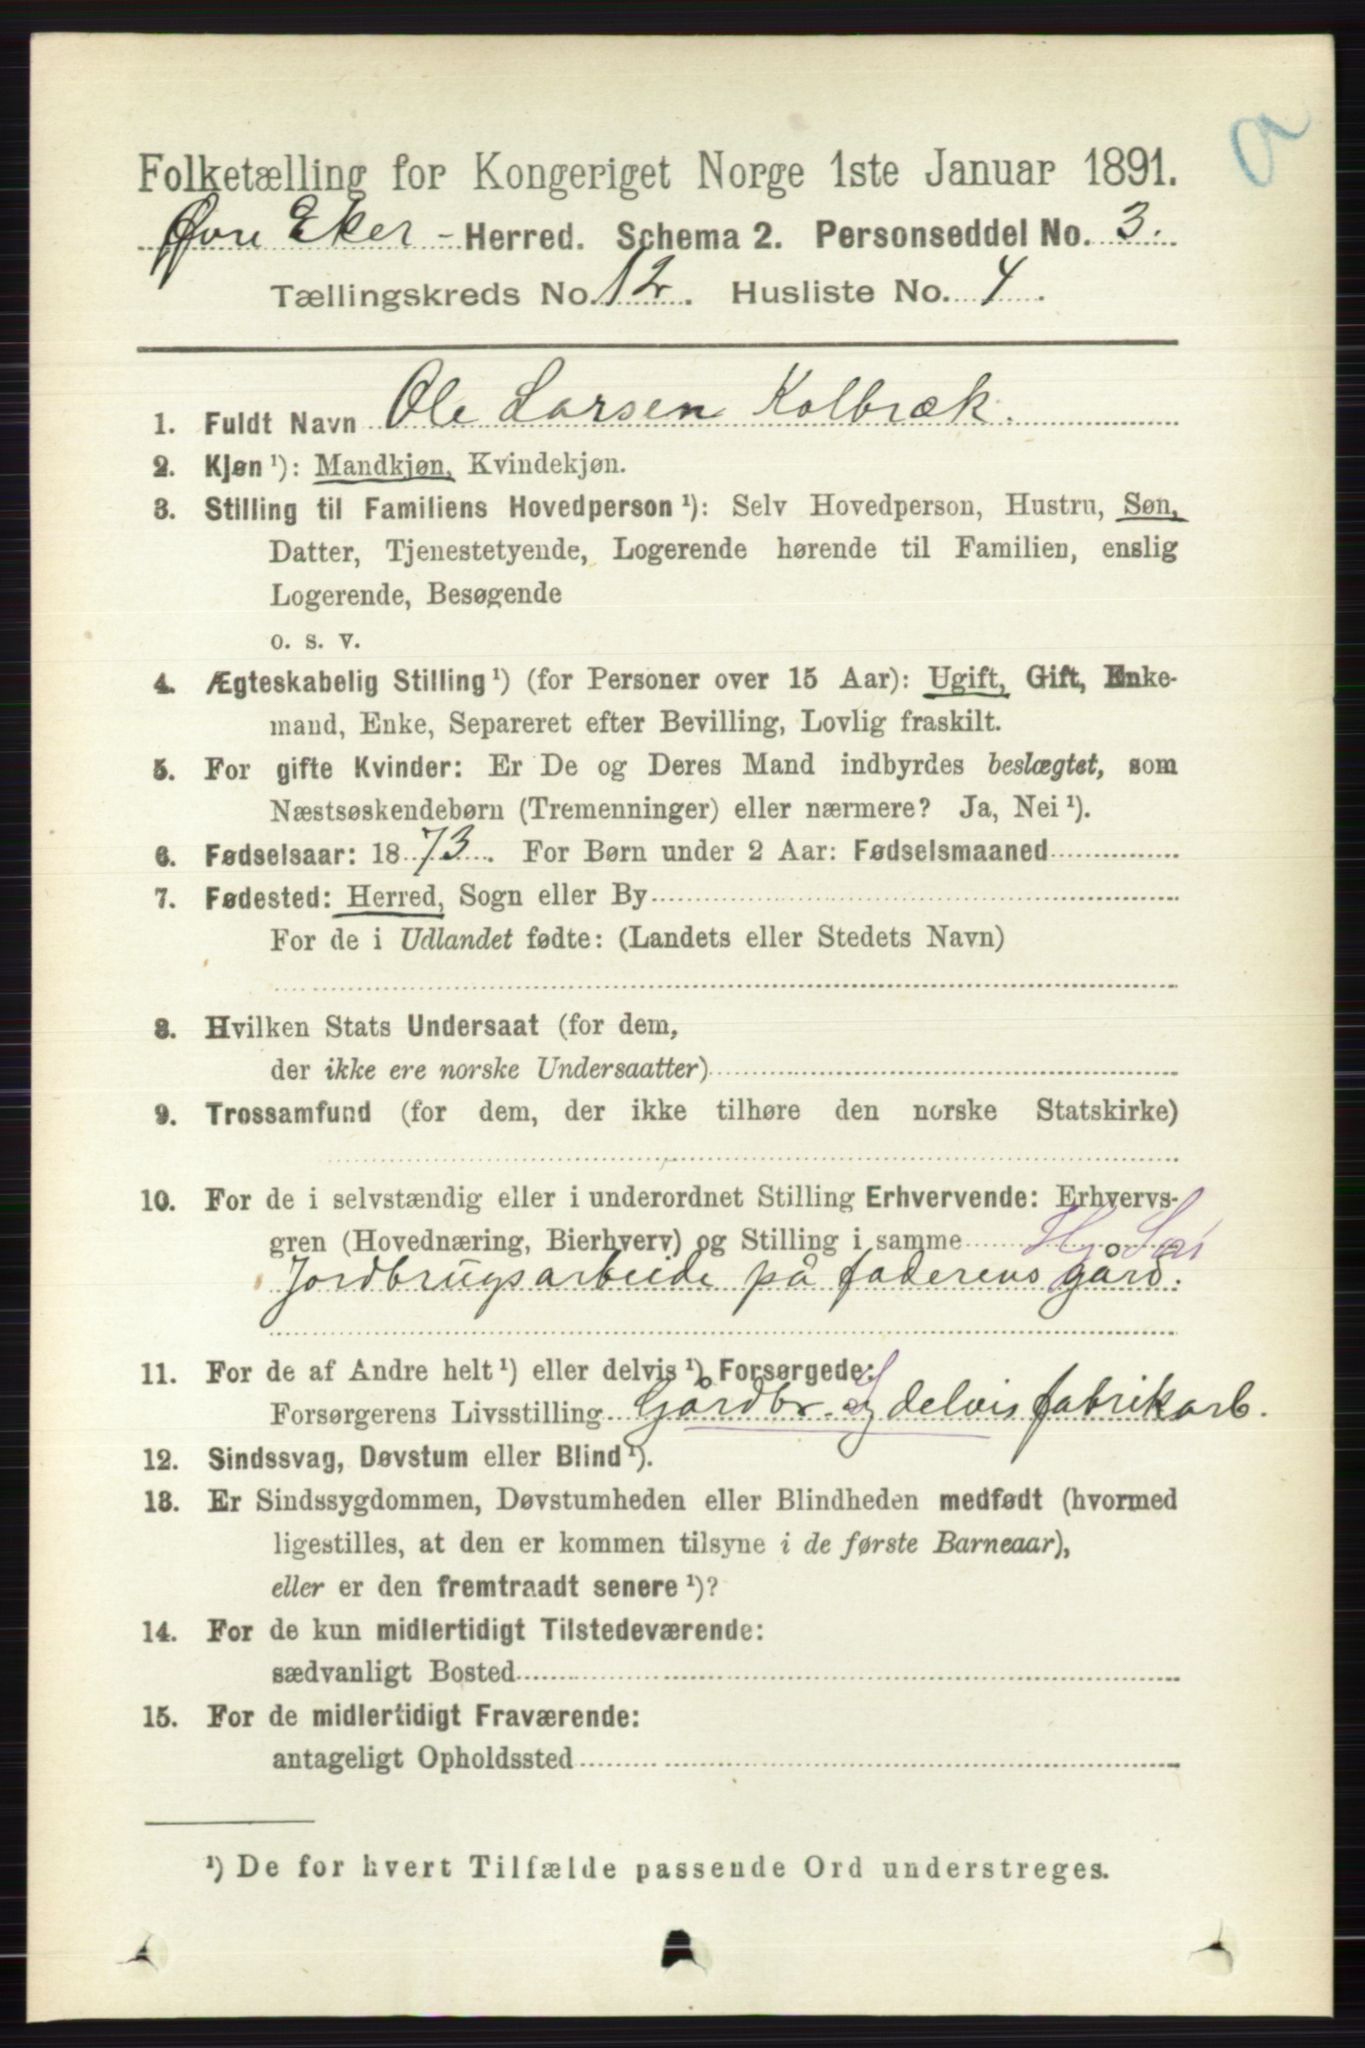 Folketælling for Kongeriget Norge 1ste Januar 1891.
Øvre Eker - Herred. Schema 2. Personseddel No. 3.
Tællingskreds No. 12. Husliste No. 4.
1. Fuldt Navn Ole Larsen Kolbræk.
2. Kjøn ¹): Mandkjøn, Kvindekjøn.
3. Stilling til Familiens Hovedperson ¹): Selv Hovedperson, Hustru, Søn,
Datter, Tjenestetyende, Logerende hørende til Familien, enslig
Logerende, Besøgende
o. s. v.
4. Ægteskabelig Stilling ¹) (for Personer over 15 Aar): Ugift, Gift, Enke-
mand, Enke, Separeret efter Bevilling, Lovlig fraskilt.
5. For gifte Kvinder: Er De og Deres Mand indbyrdes beslægtet, som
Næstsøskendebørn (Tremenninger) eller nærmere? Ja, Nei ¹).
6. Fødselsaar: 1873. For Børn under 2 Aar: Fødselsmaaned
7. Fødested: Herred, Sogn eller By
For de i Udlandet fødte: (Landets eller Stedets Navn)
8. Hvilken Stats Undersaat (for dem,
der ikke ere norske Undersaatter)
9. Trossamfund (for dem, der ikke tilhøre den norske Statskirke)
10. For de i selvstændig eller i underordnet Stilling Erhvervende: Erhvervs-
gren (Hovednæring, Bierhverv) og Stilling i samme
Jordbrugsarbeide på faderens gård.
11. For de af Andre helt ¹) eller delvis ¹) Forsørgede:
Forsørgerens Livsstilling Gårdbr. og delvis fabrikarb.
12. Sindssvag, Døvstum eller Blind ¹).
13. Er Sindssygdommen, Døvstumheden eller Blindheden medfødt (hvormed
ligestilles, at den er kommen tilsyne i de første Barneaar),
eller er den fremtraadt senere ¹)?
14. For de kun midlertidigt Tilstedeværende:
sædvanligt Bosted
15. For de midlertidigt Fraværende:
antageligt Opholdssted
¹) De for hvert Tilfælde passende Ord understreges.